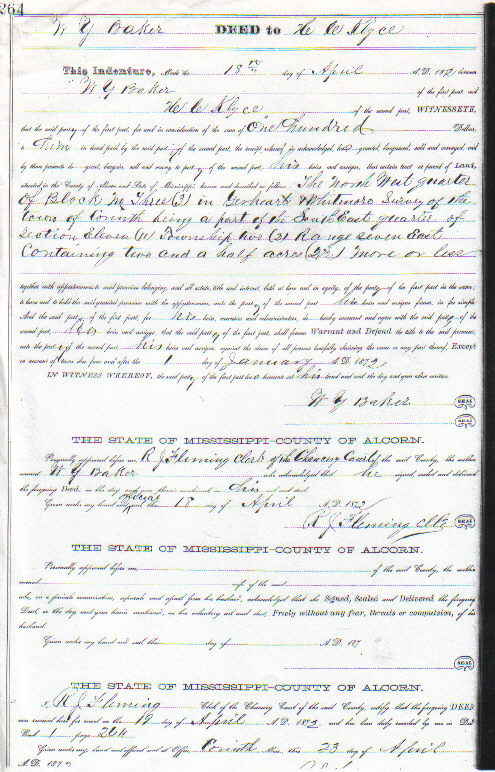 264
W Y Baker DEED to H C Klyce
This Indenture, Made the 18th day of April A.D. 1872 between
W Y Baker of the first part and
H C Klyce of the second part, WITNESSETH,
that the said party of the first part, for and in consideration of the sum of One Hundred Dollars,
in hand paid by the said party of the second part, the receipt whereof is acknowledged, has granted, bargained, sold and conveyed, and
by these presents do grant, bargain, sell and convey to party of the second part his heirs and assigns, that certain tract or parcel of Land,
situated in the County of Alcorn and State of Mississippi, known and bounded as follows The North West quarter
of Block No Three (3) in Gerhart & Whitmore Survey of the
town of Corinth being a part of the South East quarter of
Section Eleven (11) Township two (2) Range seven East
Containing two and a half acres (2½) more or less
together with appurtenances to said premises belonging, and all estate, title and interest, both at law and in equity, of the party of the first part in the same;
to have and to hold the said granted premises with the appurtenances, unto the party of the second part his heirs and assigns forever, in fee simple
And the said party of the first part, for his heirs, executors and administrators, do hereby covenant and agree with the said party of the
second part, his heirs and assigns, that the said party of the first part, shall forever Warrant and Defend the title to the said premises,
unto the party of the second part his heirs and assigns, against the claim of all persons lawfully claiming the same or any part thereof, Except
on account of taxes due from and after the 1 day of January A.D. 1872
IN WITNESS WHEREOF, the said party of the first part has hereunto set his hand and seal the day and year above written.
W Y Baker SEAL
SEAL
THE STATE OF MISSISSIPPI-COUNTY OF ALCORN.
Personally appeared before me R J Fleming Clerk of the Chancery Court of the said County, the within
named W Y Baker who acknowledged that he signed, sealed and delivered
the foregoing Deed, on the day and year therein mentioned, as his act and deed
Given under my hand and official seal this 18 day of April A.D. 1872
R J Fleming Clk SEAL
THE STATE OF MISSISSIPPI-COUNTY OF ALCORN.
Personally appeared before me of the said County, the within
named wife of the said
who, in a private examination, separate and apart from her husband, acknowledged that she Signed, Sealed and Delivered the foregoing
Deed, on the day and year therein mentioned, as her voluntary act and deed, Freely without any fear, threats or compulsion, of her
husband.
Given under my hand and seal this day of A.D. 187
SEAL
THE STATE OF MISSISSIPPI-COUNTY OF ALCORN.
I, R J Fleming Clerk of the Chancery Court of the said County, certify that the foregoing DEED
was received for record on the 19 day of April A.D. 1872 and has been duly recorded by me in Deed
Book 1 page 264
Given under my hand and official seal at Office Corinth Miss. this 23 day of April
A.D. 187